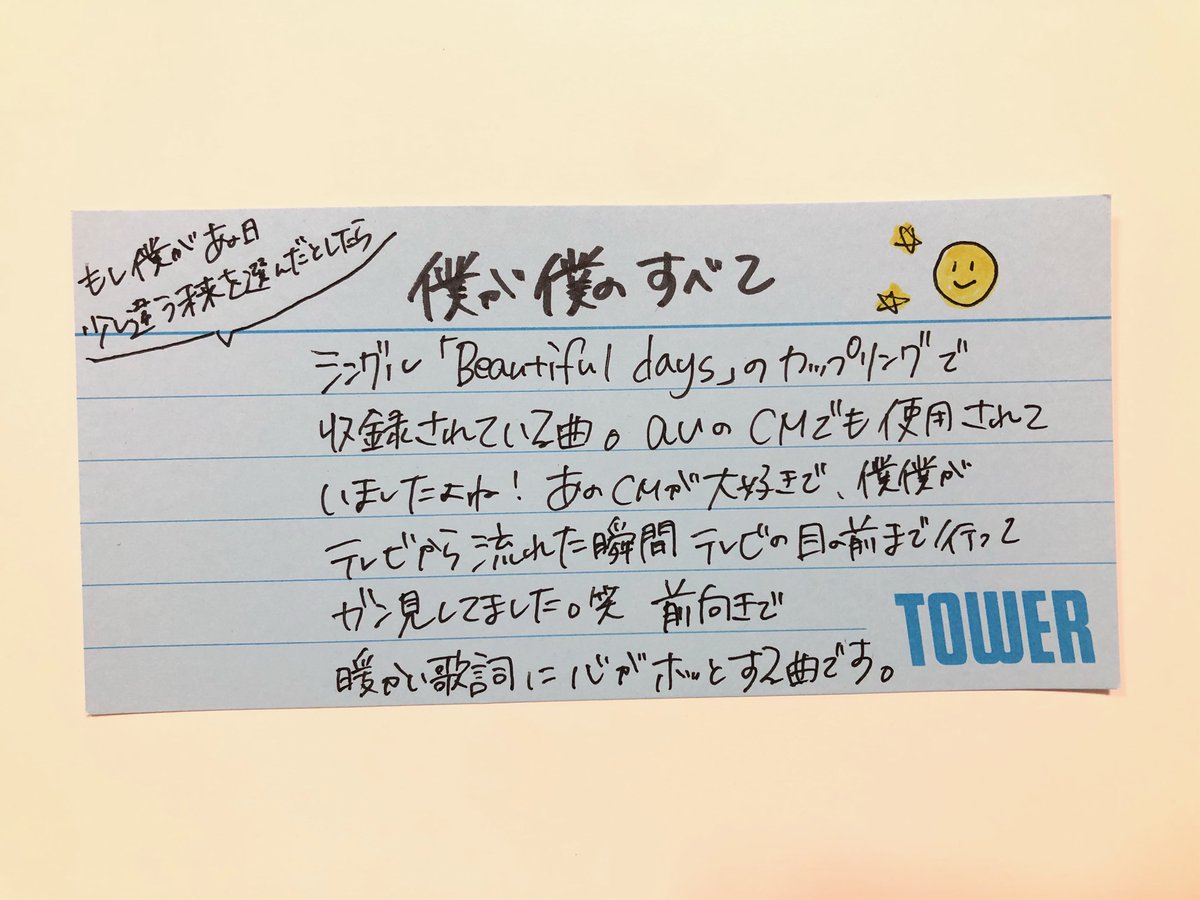 もし僕があの日
少し違う未来を選んだとしたら
僕が僕のすべて
シングル「Beautiful days」のカップリングで
収録されている曲。auのCMでも使用されて
いましたよね！あのCMが大好きで、僕僕が
テレビから流れた瞬間テレビの目の前まで行って
ガン見してました。笑 前向きで
暖かい歌詞に心がホッとする曲です。
TOWER